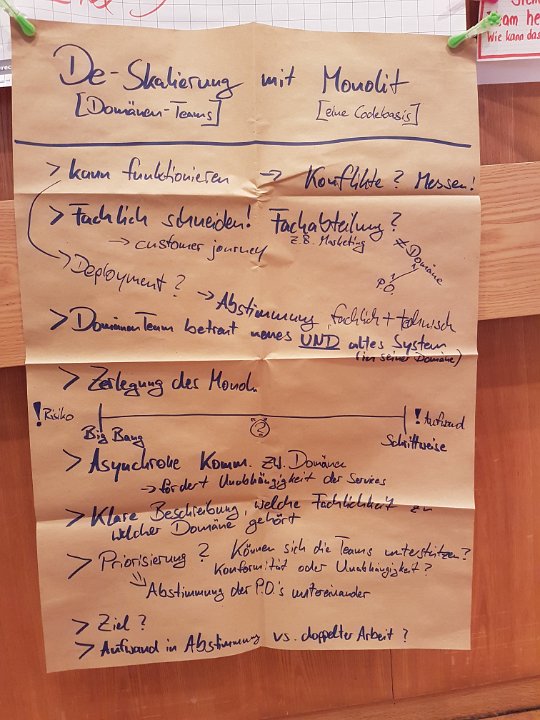 De-Skalierung mit Monolit
[Domänen-Teams] [eine Codebasis]
> kann funktionieren → Konflikte? Messen!
> Fachlich schneiden! Fachabteilung?
z.B. Marketing
→ customer journey
≠ Domäne
N
1
P.O.
> Deployment?
→ Abstimmung, fachlich + technisch
> Domänen Team betreut neues UND altes System
(in seiner Domäne)
> Zerlegung des Monol.
! Risiko
! Aufwand
Big Bang
?
Schrittweise
> Asynchrone Komm. zw. Domäne
→ fördert Unabhängigkeit der Services
> Klare Beschreibung, welche Fachlichkeit zu
welcher Domäne gehört
> Priorisierung? Können sich die Teams unterstützen?
Konformität oder Unabhängigkeit?
Abstimmung der P.O.'s untereinander
> Ziel?
> Aufwand in Abstimmung vs. doppelter Arbeit?
Wie kann das